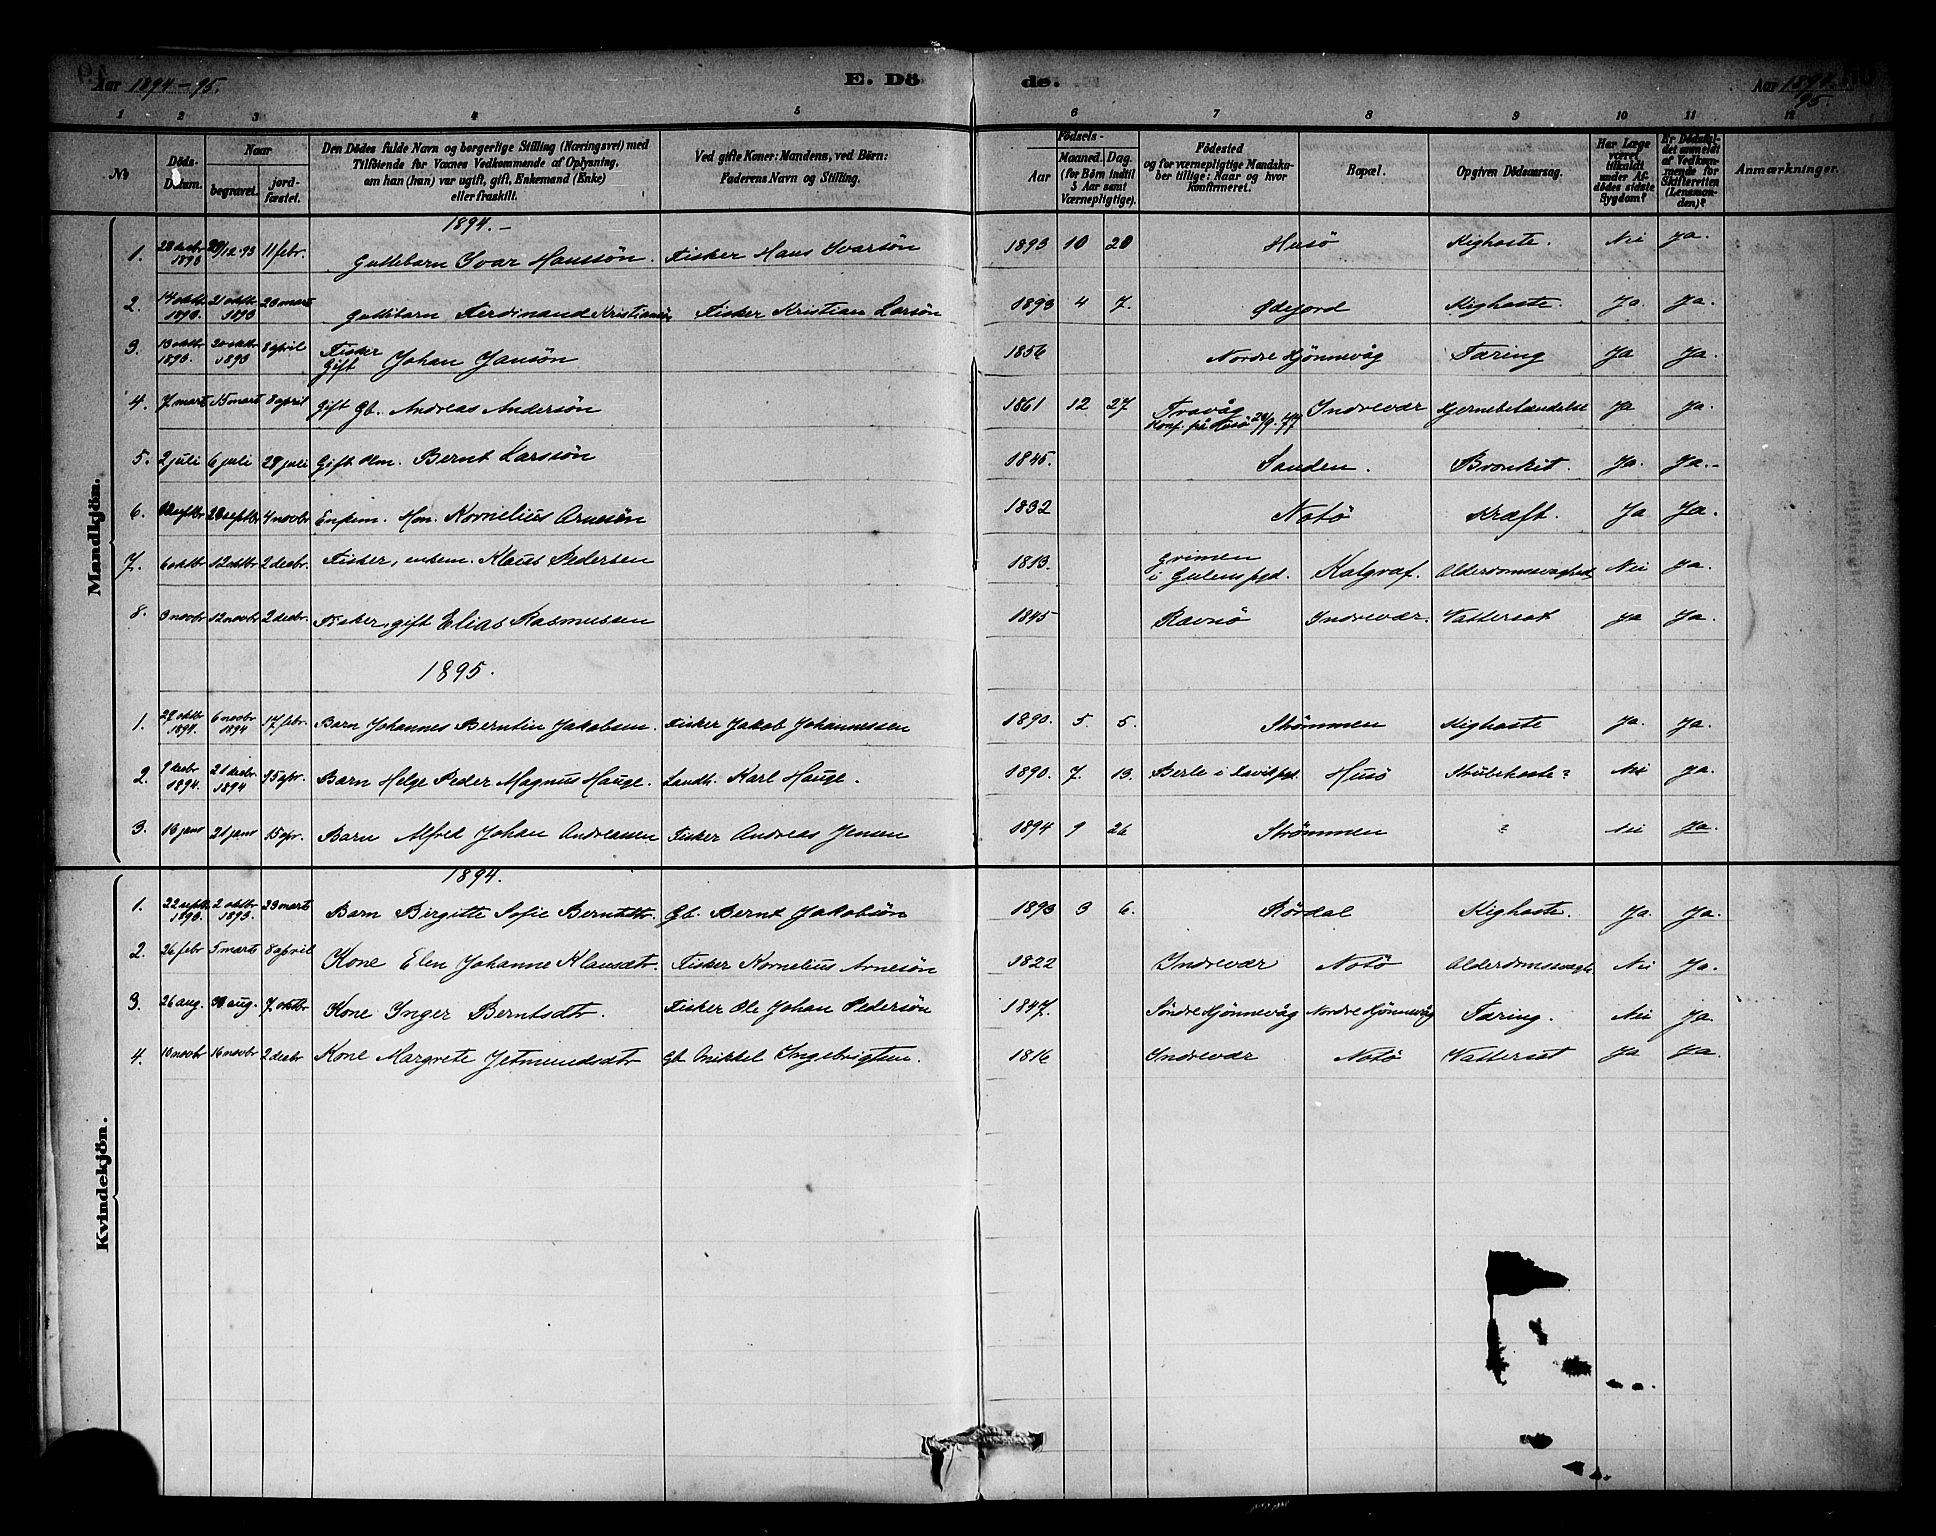 Aar 1894-95.
E. Dö
de.
Aar 1894-
95.
1 2 3 4 5 6 7 8 9 10 11 12
No
Döds-
Datum.
Naar
begravet. jord-
fæstet.
Den Dödes fulde Navn og borgerlige Stilling (Næringsvei) med
Tilföiende for Voxnes Vedkommende af Oplysning,
om han (hun) var ugift, gift, Enkemand (Enke)
eller fraskilt.
Ved gifte Koner: Mandens, ved Börn:
Faderens Navn og Stilling.
Födsels-
Aar
Maaned. Dag.
(for Börn indtil
5 Aar samt
Værnepligtige).
Födested
og for værnepligtige Mandska-
ber tillige: Naar og hvor
konfirmeret.
Bopæl.
Opgiven Dödsaarsag.
Har Læge
været
tilkaldt
under Af-
dödes sidste
Sygdom?
Er Dödsfal-
det anmeldt
af Vedkom-
mende for
Skifteretten
(Lensman-
den)?
Anmærkninger.
Mandkjön.
1894.-
1. 28 decbr 1893 29/12-93 11 febr. Guttebarn Ivar Hanssön. Fisker Hans Ivarsön 1893 10 20 Husö Kighoste. Nei Ja.
2. 14 oktbr 1893. 21 oktbr 1893 20 marts Guttebarn Ferdinand Kristiansön Fisker Kristian Larsön 1893 4 7. Ødejord Kighoste. Ja. Ja.
3. 13 oktbr 1893. 20 oktbr 1893 8 april Fisker Gift Johan Jansön 1856 Nordre Hjönnevåg Tæring Ja Ja.
4. 7 marts 15 marts 8 april Gift Gb. Andreas Andersön 1861 12 27 Travåg Konf. på Husö Indrevær Hjernebetændelse Ja Ja.
5. 2 juli 6 juli 29 juli Gift Bernt Larssön 1845. Sanden. Bronkit. Ja. Ja.-
6. 28 septbr 4 novbr Enkem. Hm. Kornelius Arnesön 1832 Notö Kræft. Ja Ja.
7. 6 oktbr 12 oktbr 2 decbr. Fisker, enkem. Klaus Pedersen 1813. Grimen i Gulenspgd. Kalgraf. Alderdomssvaghed Nei Ja.
8. 3 novbr 12 novbr 2 decbr. Fisker, gift Elias Rasmussen 1845 Ravnö Indrevær. Vattersot Ja Ja.
1895.
1. 27 oktbr 1894. 6 novbr 1894 17 febr. Barn Johannes Berntin Jakobsen. Fisker Jakob Johannessen 1890. 5. 5. Strömmen Kighoste Ja. Ja.
2. 9 decbr 1894. 21 decbr 1894 15 apr. Barn Helge Peder Magnus Hauge. Landh. Karl Hauge. 1890. 7. 13. Berle i Husö Strubehoste? Nei Ja.
3. 13 janr 21 janr 15 apr. Barn Alfred Johan Andreassen Fisker Andreas Jensen 1894 9 26 Strömmen ? Nei Ja.
Kvindekjön.
1894.
1. 22 septbr 1893. 2 oktbr 1893. 23 marts Barn Birgitte Sofie Berntsdtr. Gb. Bernt Jakobsön 1893 3 6. Rördal Kighoste. Ja. Ja.
2. 26 febr 5 marts 8 april Kone Elen Johanne Klausdtr. Fisker Kornelius Arnesön 1822 Indrevær Notö Alderdomssvagh. Nei Ja.
3. 26 aug. 30 aug. 7 oktbr Kone Inger Berntsdtr. Fisker Ole Johan Pedersön 1847. Söndre Hjönnevåg Nordre Hjönnevåg Tæring. Nei Ja.
4. 10 novbr 16 novbr 2 decbr Kone Margrete Jetmundsdtr Gb. Mikkel Ingebrigtsen. 1816 Indrevær Notö Vattersot Ja Ja.